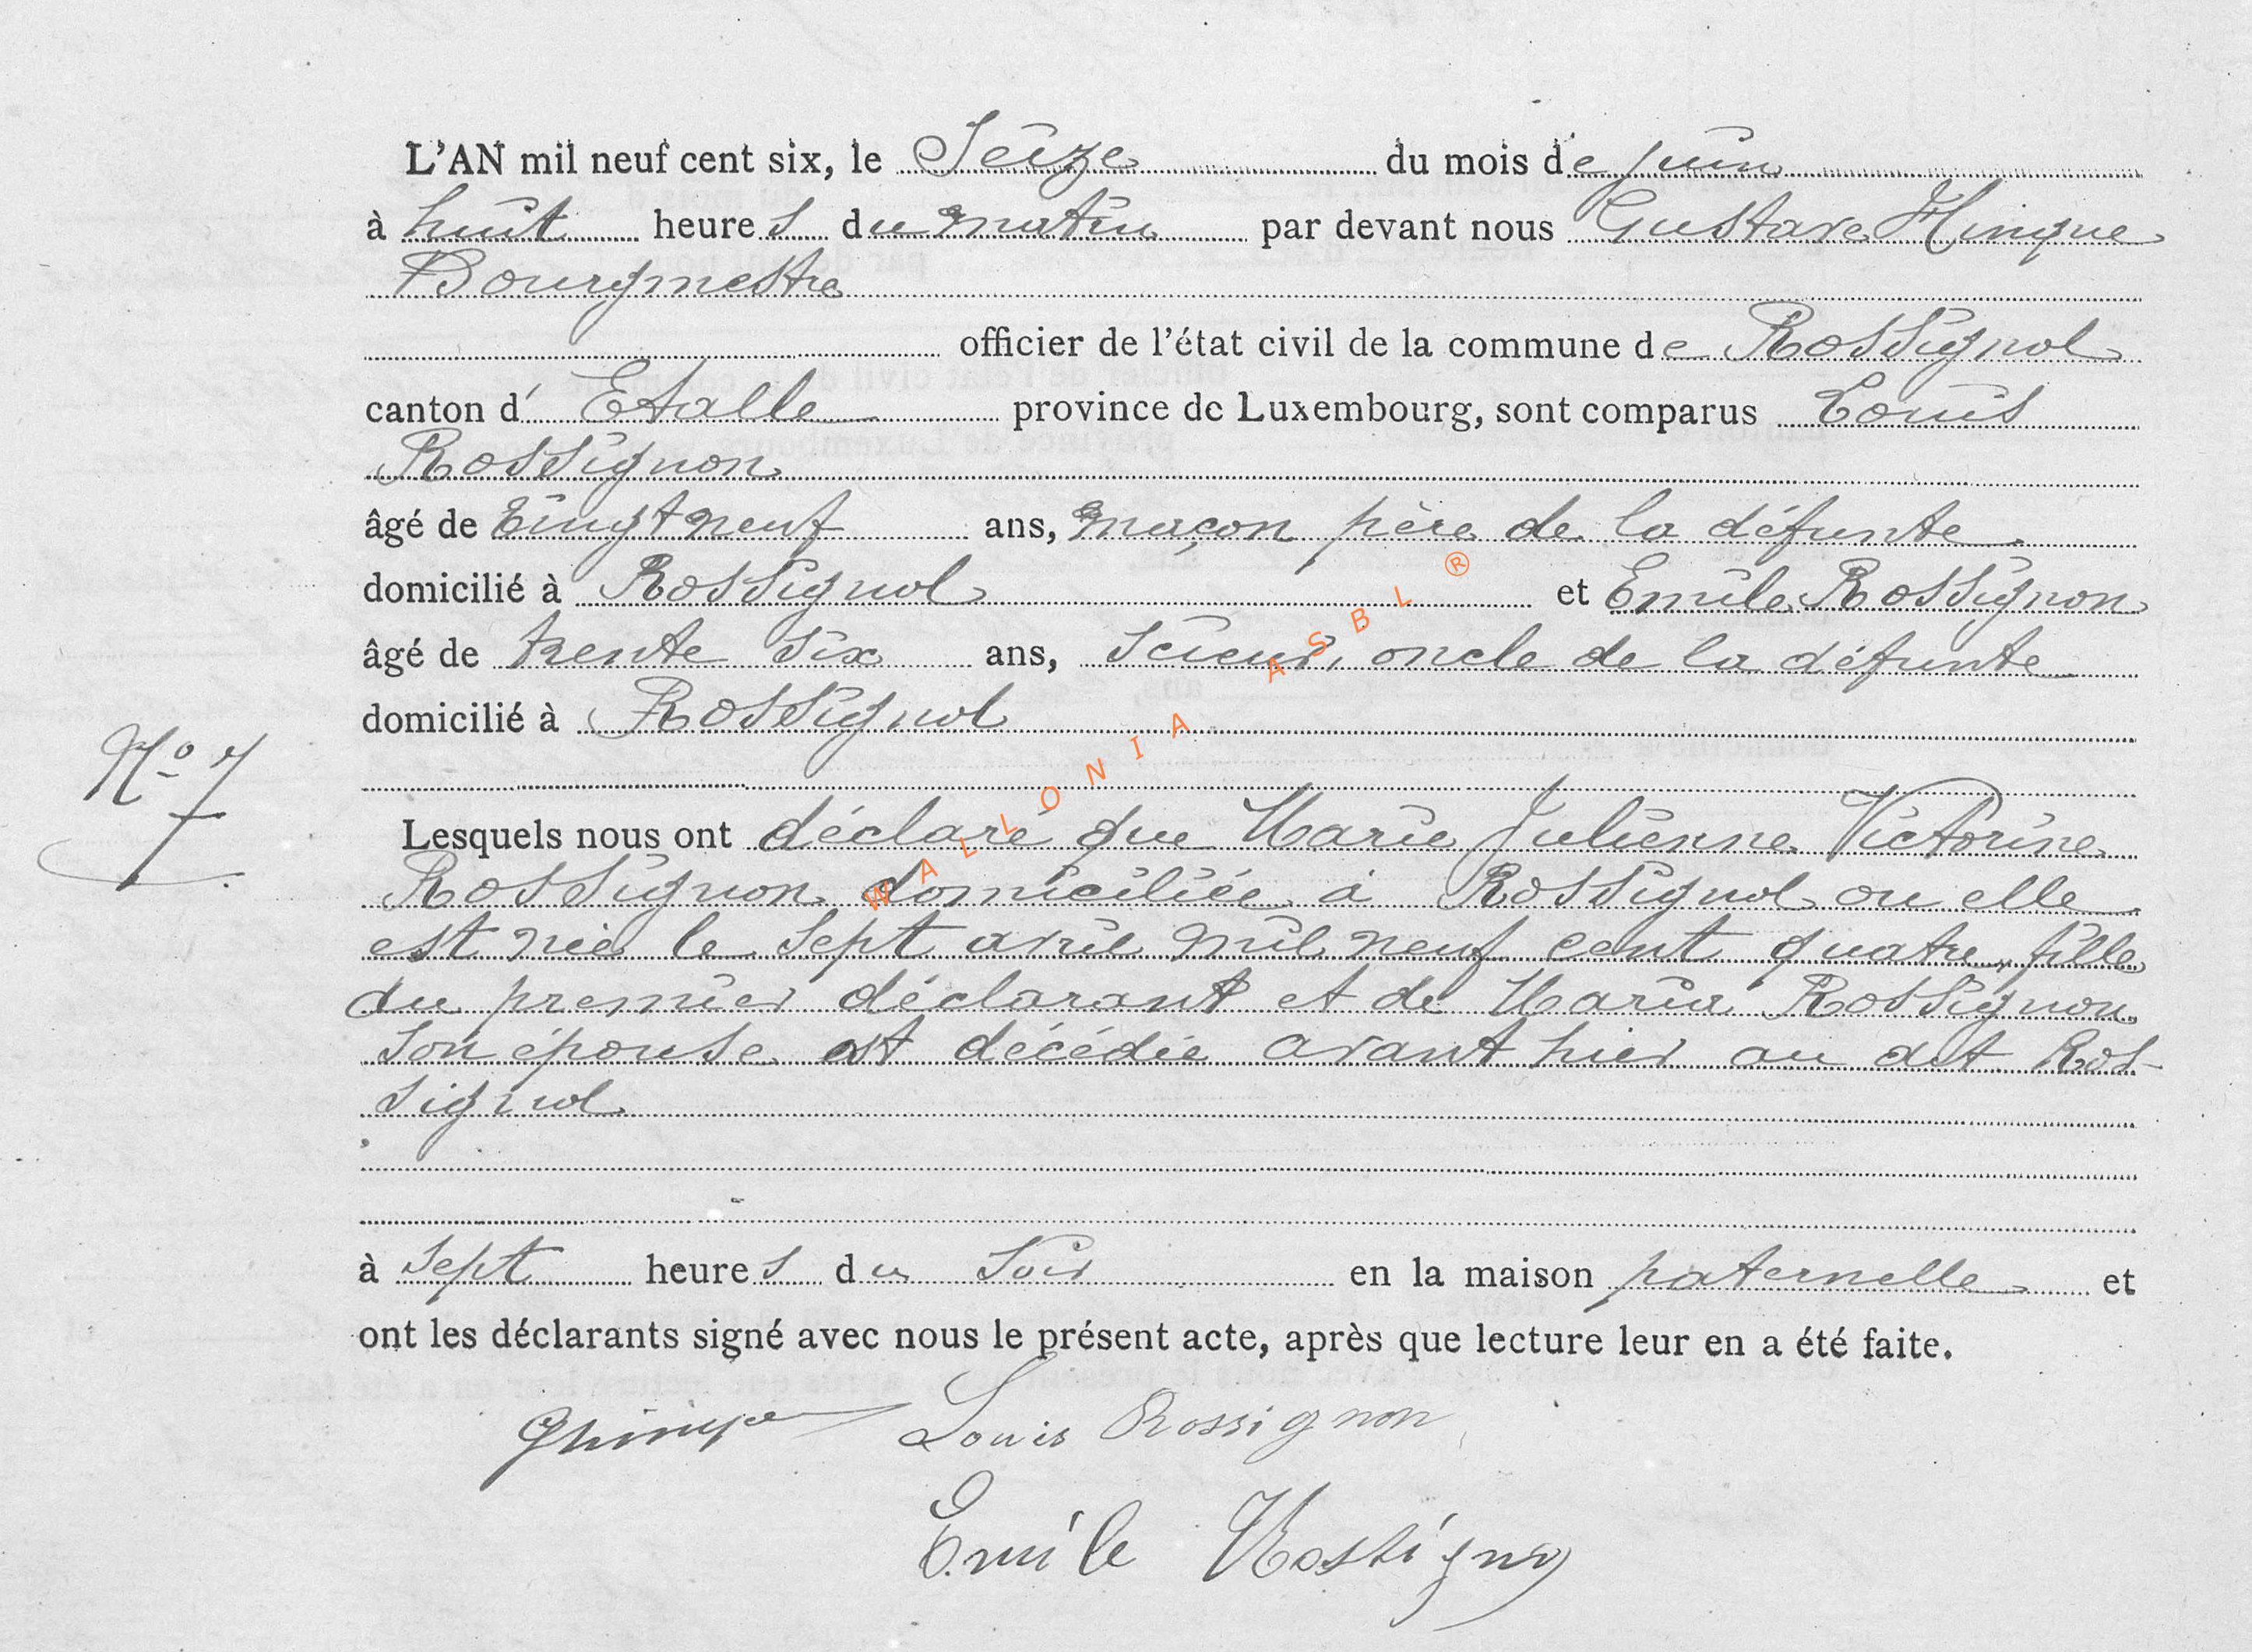 L'AN mil neuf cent six, le Seize du mois de juin
à huit heures du matin par devant nous Gustave Hinque
Bourgmestre
officier de l'état civil de la commune de Rossignol
canton d'Etalle province de Luxembourg, sont comparus Louis
Rossignon
âgé de Vingt neuf ans, maçon père de la défunte
domicilié à Rossignol et Emile Rossignon
âgé de trente six ans, scieur, oncle de la défunte
domicilié à Rossignol
No 7
Lesquels nous ont déclaré que Marie Julienne Victorine
Rossignon domiciliée à Rossignol ou elle
est née le sept avril mil neuf cent quatre, fille
du premier déclarant et de Maria Rossignon
son épouse est décédée avant hier au dit Ros-
signol
à sept heures du soir en la maison paternelle et
ont les déclarants signé avec nous le présent acte, après que lecture leur en a été faite.
Ghinque Louis Rossignon
Emile Rossignon
WALLONIA ASBL ®